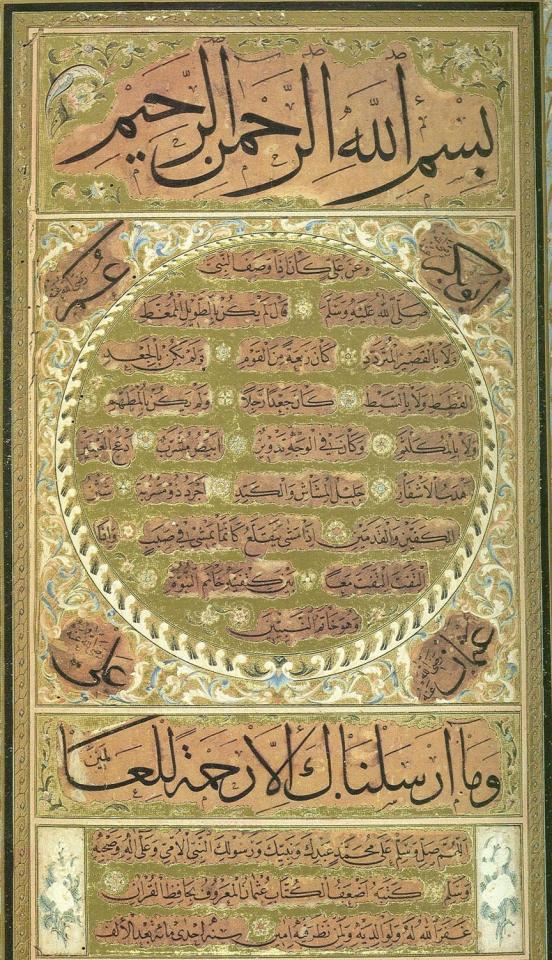 بسم الله الرحمن الرحيم
ابو بكر رضي الله عنه
عمر رضي الله عنه
وعن علي كان اذا وصف النبي
صلى الله عليه وسلم قال لم يكن بالطويل الممغط
ولا بالقصير المتردد كان ربعة من القوم ولم يكن بالجعد
القطط ولا بالسبط كان جعدا رجلا ولم يكن بالمطهم
ولا بالمكلثم وكان في الوجه تدوير ابيض مشرب ادعج العينين
اهدب الاشفار جليل المشاش والكتد اجرد ذو مسربة شثن
الكفين والقدمين اذا مشى يتقلع كانما يمشي في صبب واذا
التفت التفت معا بين كتفيه خاتم النبوة
وهو خاتم النبيين
عثمان رضي الله عنه
علي رضي الله عنه
وما ارسلناك الا رحمة للعالمين
اللهم صل وسلم على محمد عبدك ونبيك ورسولك النبي الامي وعلى اله وصحبه
وسلم كتبه اضعف الكتاب عثمان المعروف بحافظ القران
غفر الله له ولوالديه ولمن نظر فيه امين سنه احدى مائه بعد الالف